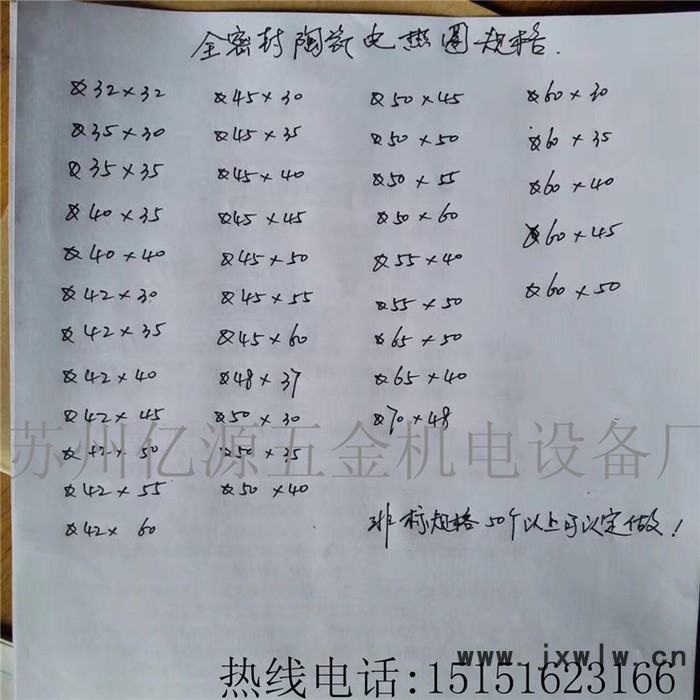 全密封陶瓷电热圈规格.
Ø32×32
Ø35×30
Ø35×35
Ø40×35
Ø40×40
Ø42×30
Ø42×35
Ø42×40
Ø42×45
Ø42×50
Ø42×55
Ø42×60
Ø45×30
Ø45×35
Ø45×40
Ø45×45
Ø45×50
Ø45×55
Ø45×60
Ø48×37
Ø50×30
Ø50×35
Ø50×40
Ø50×45
Ø50×50
Ø50×55
Ø50×60
Ø55×40
Ø55×50
Ø65×50
Ø65×40
Ø70×48
Ø60×30
Ø60×35
Ø60×40
Ø60×45
Ø60×50
苏州亿源五金机电设备厂
非标规格50个以上可以定做!
www.jxwlw.cn
热线电话:15151623166